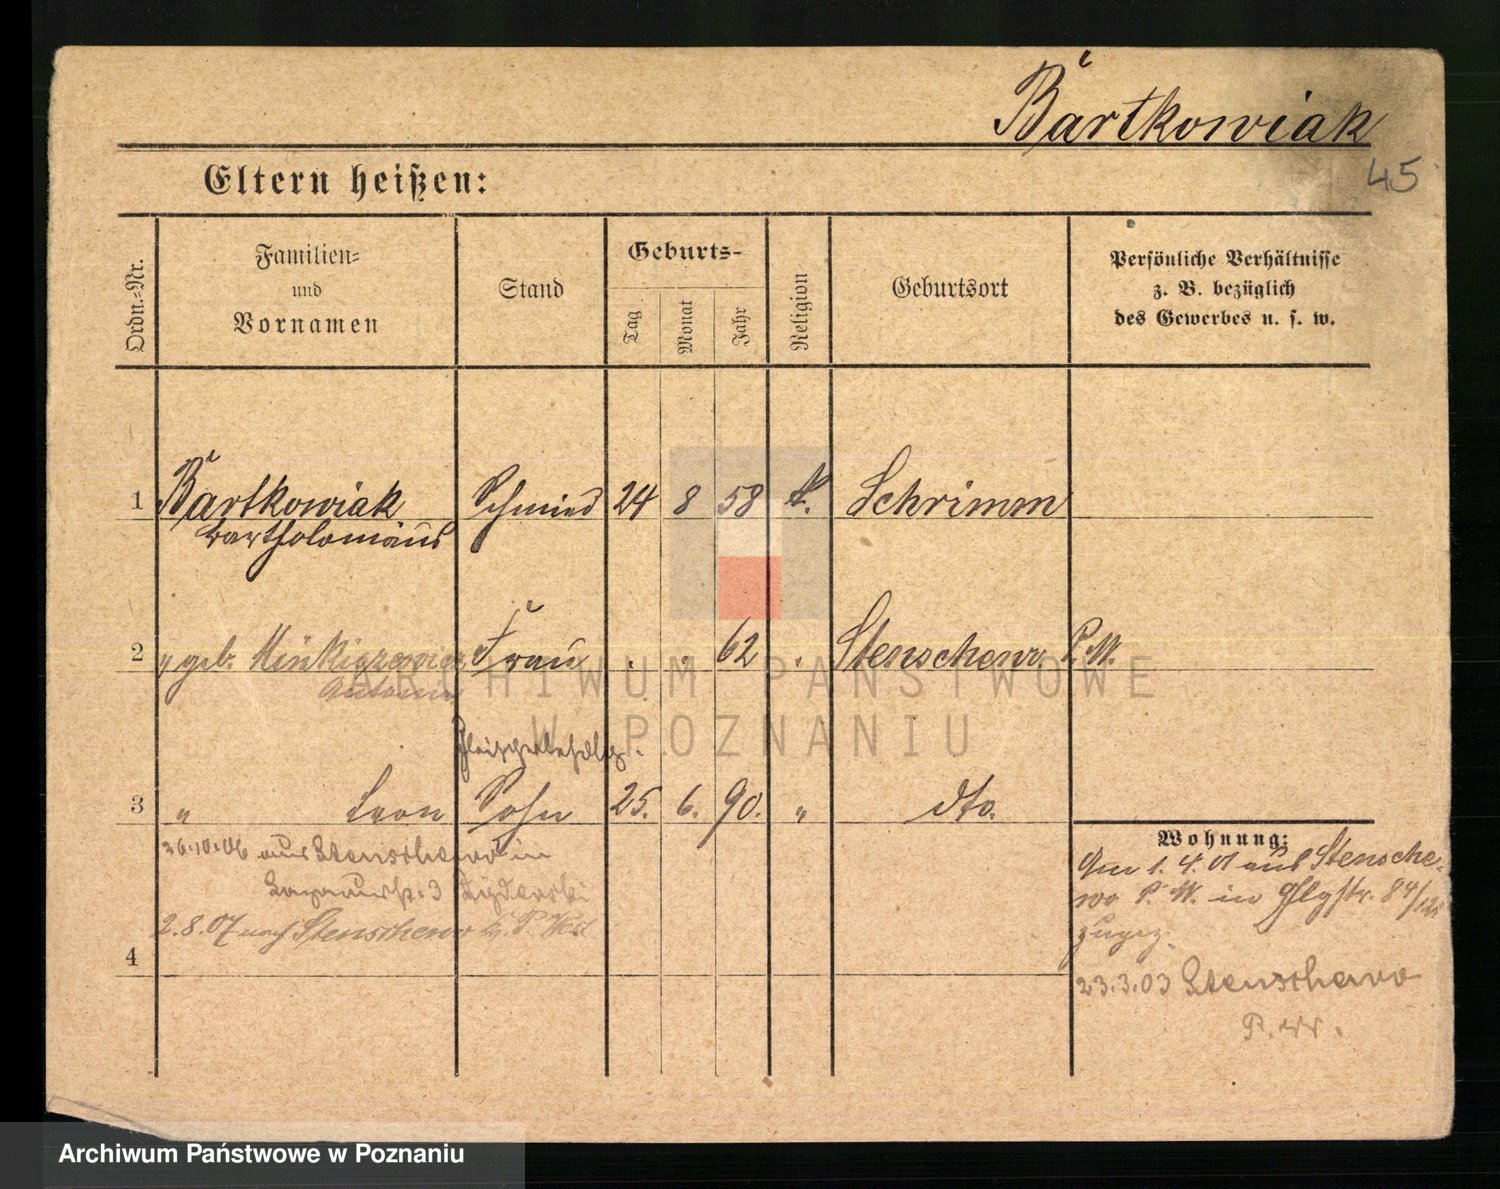 Bartkowiak
45
Eltern heißen:
Ordn.-Nr.
Familien- und Vornamen
Stand
Geburts-
Tag
Monat
Jahr
Religion
Geburtsort
Persönliche Verhältnisse
z. B. bezüglich
des Gewerbes u. s. w.
1 Bartkowiak Schmied 24 8 58 k. Schrimm
Bartholomäus
2 " geb. Frau 62 Stenschewo P. W.
Antonie
3 " Leon Sohn 25. 6. 90. " dto.
Wohnung:
26.10.06 aus Stenschewo in
3
2.8.07 nach Stenschewo Kr. P. West
4
Am 1.4.01 aus Stensche-
wo P. W. in
zugez.
23.3.03 Stenschewo
P. W.
ARCHIWUM PAŃSTWOWE
W POZNANIU
Archiwum Państwowe w Poznaniu